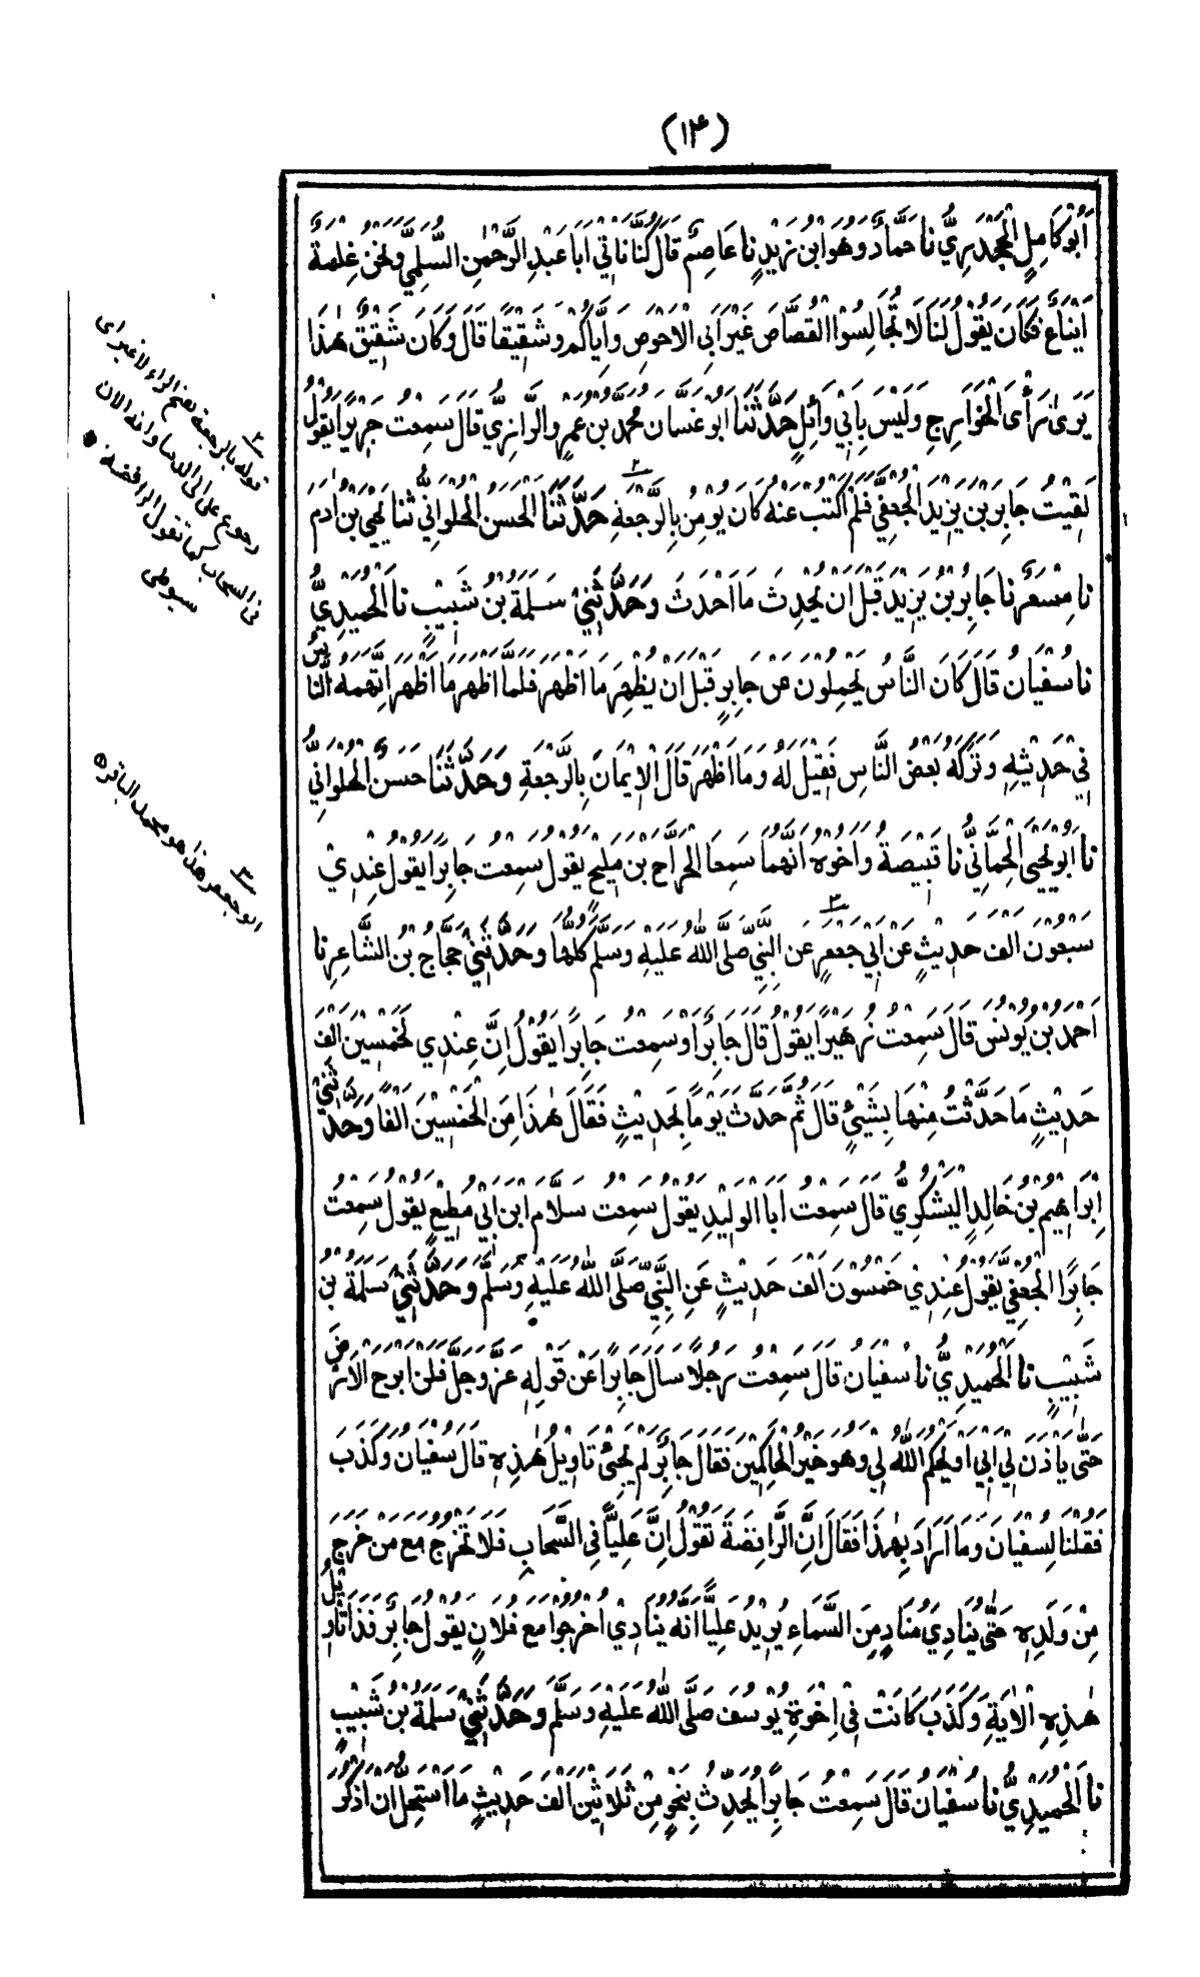 (۱۴)
اَبُوْكَامِلٍ الْجَحْدَرِيُّ نا حَمَّادٌ وَهُوَ ابْنُ زَيْدٍ نا عَاصِمٌ قَالَ كُنَّا نَاْتِيْ اَبَا عَبْدِ الرَّحْمٰنِ السُّلَمِيَّ وَنَحْنُ غِلْمَةٌ
اَيْفَاعٌ فَكَانَ يَقُوْلُ لَنَا لَا تُجَالِسُوْا الْقُصَّاصَ غَيْرَ اَبِي الْاَحْوَصِ وَاِيَّاكُمْ وَشَقِيْقًا قَالَ وَكَانَ شَقِيْقٌ هٰذَا
يَرَىٰ رَأْىَ الْخَوَارِجِ وَلَيْسَ بِاَبِيْ وَائِلٍ حَدَّثَنَا اَبُوْ غَسَّانَ مُحَمَّدُ بْنُ عَمْرٍو الرَّازِيُّ قَالَ سَمِعْتُ جَرِيْرًا يَقُوْلُ
لَقِيْتُ جَابِرَ بْنَ يَزِيْدَ الْجُعْفِيَّ فَلَمْ اَكْتُبْ عَنْهُ كَانَ يُؤْمِنُ بِالرَّجْعَةِ ٢ حَدَّثَنَا الْحَسَنُ الْحُلْوَانِيُّ ثَنَا يَحْيَى بْنُ اٰدَمَ
نا مِسْعَرٌ نا جَابِرُ بْنُ يَزِيْدَ قَبْلَ اَنْ يُحْدِثَ مَا اَحْدَثَ وَحَدَّثَنِيْ سَلَمَةُ بْنُ شَبِيْبٍ نا الْحُمَيْدِيُّ
نا سُفْيَانُ قَالَ كَانَ النَّاسُ يَحْمِلُوْنَ عَنْ جَابِرٍ قَبْلَ اَنْ يُظْهِرَ مَا اَظْهَرَ فَلَمَّا اَظْهَرَ مَا اَظْهَرَ اِتَّهَمَهُ النَّاسُ
فِيْ حَدِيْثِهِ وَتَرَكَهُ بَعْضُ النَّاسِ فَقِيْلَ لَهُ وَمَا اَظْهَرَ قَالَ الْاِيْمَانَ بِالرَّجْعَةِ وَحَدَّثَنَا حَسَنٌ الْحُلْوَانِيُّ
نا اَبُوْ يَحْيَى الْحِمَّانِيُّ نا قَبِيْصَةُ وَاَخُوْهُ اَنَّهُمَا سَمِعَا الْجَرَّاحَ بْنَ مَلِيْحٍ يَقُوْلُ سَمِعْتُ جَابِرًا يَقُوْلُ عِنْدِيْ
سَبْعُوْنَ اَلْفَ حَدِيْثٍ عَنْ اَبِيْ جَعْفَرٍ ٣ عَنِ النَّبِيِّ صَلَّى اللّٰهُ عَلَيْهِ وَسَلَّمَ كُلُّهَا وَحَدَّثَنِيْ حَجَّاجُ بْنُ الشَّاعِرِ نا
اَحْمَدُ بْنُ يُوْنُسَ قَالَ سَمِعْتُ زُهَيْرًا يَقُوْلُ قَالَ جَابِرٌ اَوْ سَمِعْتُ جَابِرًا يَقُوْلُ اِنَّ عِنْدِيْ لَخَمْسِيْنَ اَلْفَ
حَدِيْثٍ مَا حَدَّثْتُ مِنْهَا بِشَيْئٍ قَالَ ثُمَّ حَدَّثَ يَوْمًا بِحَدِيْثٍ فَقَالَ هٰذَا مِنَ الْخَمْسِيْنَ اَلْفًا وَحَدَّثَنِيْ
اِبْرَاهِيْمُ بْنُ خَالِدٍ الْيَشْكُرِيُّ قَالَ سَمِعْتُ اَبَا الْوَلِيْدِ يَقُوْلُ سَمِعْتُ سَلَّامَ ابْنَ اَبِيْ مُطِيْعٍ يَقُوْلُ سَمِعْتُ
جَابِرًا الْجُعْفِيَّ يَقُوْلُ عِنْدِيْ خَمْسُوْنَ اَلْفَ حَدِيْثٍ عَنِ النَّبِيِّ صَلَّى اللّٰهُ عَلَيْهِ وَسَلَّمَ وَحَدَّثَنِيْ سَلَمَةُ بْنُ
شَبِيْبٍ نا الْحُمَيْدِيُّ نا سُفْيَانُ قَالَ سَمِعْتُ رَجُلًا سَاَلَ جَابِرًا عَنْ قَوْلِهِ عَزَّ وَجَلَّ فَلَنْ اَبْرَحَ الْاَرْضَ
حَتّٰى يَاْذَنَ لِيْ اَبِيْ اَوْ يَحْكُمَ اللّٰهُ لِيْ وَهُوَ خَيْرُ الْحَاكِمِيْنَ فَقَالَ جَابِرٌ لَمْ يَجِئْ تَاْوِيْلُ هٰذِهِ قَالَ سُفْيَانُ وَكَذَبَ
فَقُلْنَا لِسُفْيَانَ وَمَا اَرَادَ بِهٰذَا فَقَالَ اِنَّ الرَّافِضَةَ تَقُوْلُ اِنَّ عَلِيًّا فِي السَّحَابِ فَلَا تَخْرُجُ مَعَ مَنْ خَرَجَ
مِنْ وَلَدِهِ حَتّٰى يُنَادِيَ مُنَادٍ مِنَ السَّمَاءِ يُرِيْدُ عَلِيًّا اَنَّهُ يُنَادِيْ اُخْرُجُوْا مَعَ فُلَانٍ يَقُوْلُ جَابِرٌ فَذَا تَاْوِيْلُ
هٰذِهِ الْاٰيَةِ وَكَذَبَ كَانَتْ فِيْ اِخْوَةِ يُوْسُفَ صَلَّى اللّٰهُ عَلَيْهِ وَسَلَّمَ وَحَدَّثَنِيْ سَلَمَةُ بْنُ شَبِيْبٍ
نا الْحُمَيْدِيُّ نا سُفْيَانُ قَالَ سَمِعْتُ جَابِرًا يُحَدِّثُ بِنَحْوٍ مِنْ ثَلَاثِيْنَ اَلْفَ حَدِيْثٍ مَا اَسْتَحِلُّ اَنْ اَذْكُرَ
٢ قوله بالرجعة بفتح الراء لا غير اى
رجوع على الى الدنيا وانه الان
فى السحاب كما تقول الرافضة
سيوطى
٣ ابو جعفر هذا هو محمد الباقر